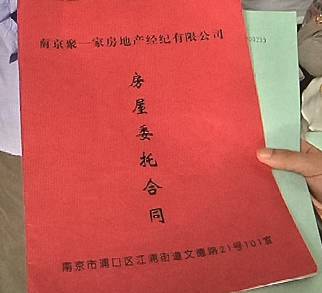 南京聚一家房地产经纪有限公司
房屋委托合同
南京市浦口区江浦街道文德路21号101室